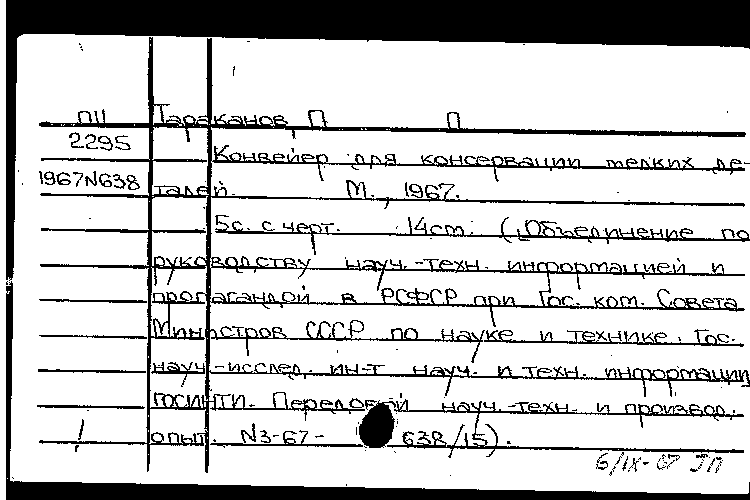 ПII Тараканов, П П
2295 Конвейер для консервации мелких де-
1967N638 талей. М., 1967.
5с. с черт. 14см. („Объединение по
руководству науч.-техн. информацией и
пропагандой в РСФСР при Гос. ком. Совета
Министров СССР по науке и технике. Гос.
науч-исслед. ин-т науч. и техн. информации
ГОСИНТИ. Передовой науч.-техн. и производ.
опыт. N3-67- 638/15).
6/IX-67